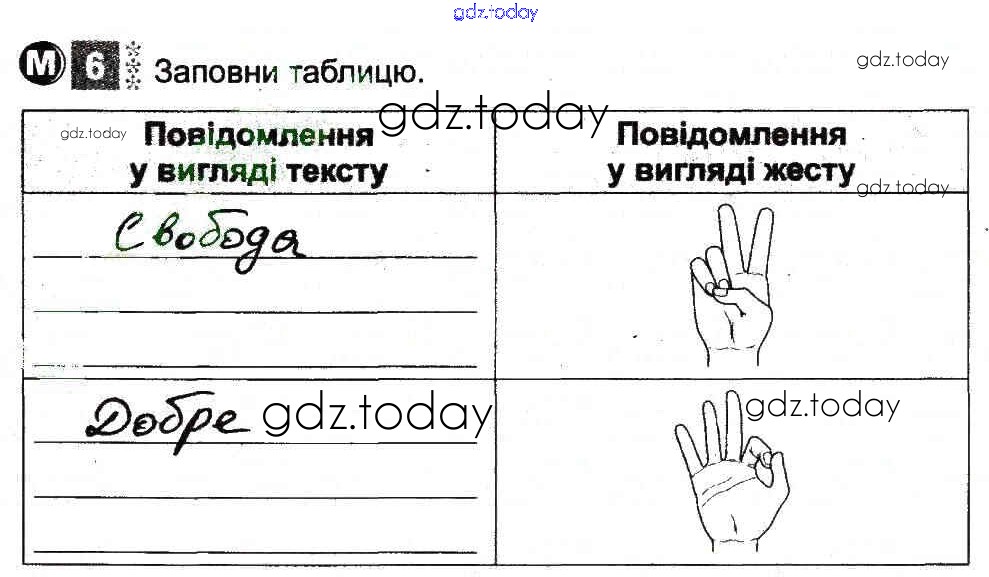 gdz.today
М 6 Заповни таблицю.
gdz.today
gdz.today
gdz.today
Повідомлення
у вигляді тексту
Повідомлення
у вигляді жесту
gdz.today
Свобода
Добре
gdz.today
gdz.today